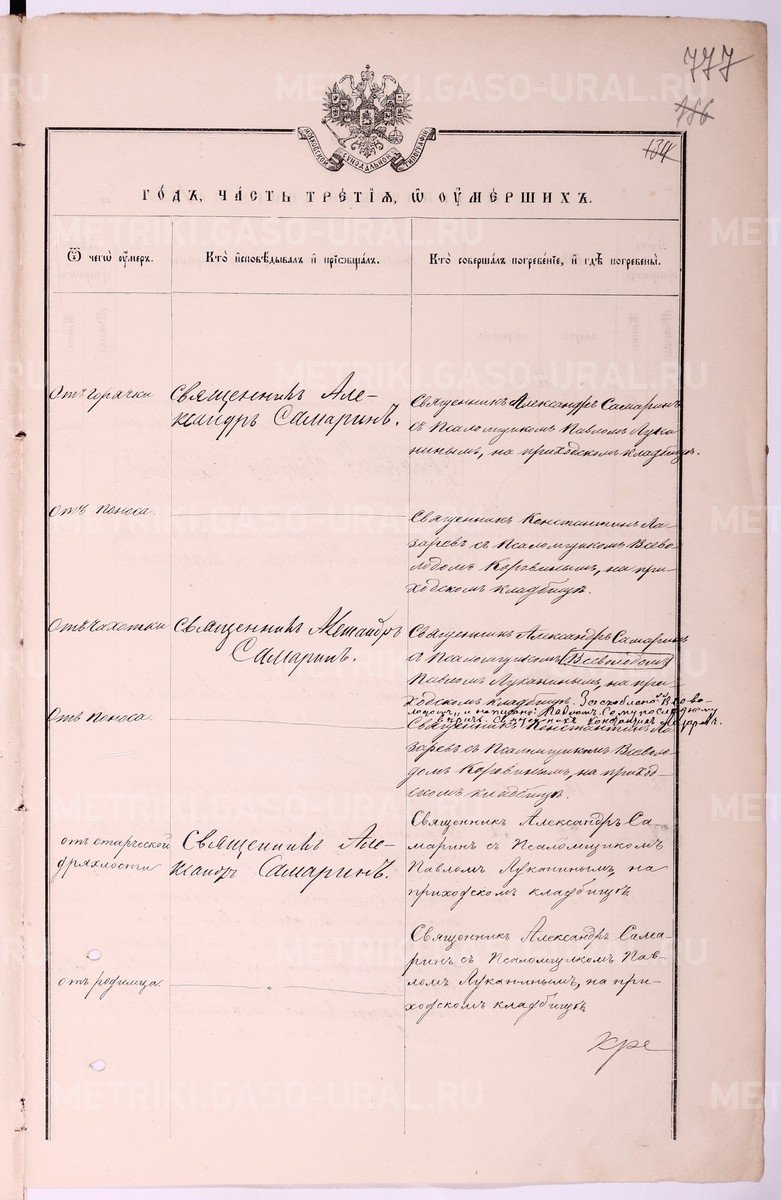 777
786
134
МОСКОВСКОЙ СѴНОДАЛЬНОЙ ТИПОГРАФІИ
ГО́ДЪ, ЧА́СТЬ ТРЕ́ТІѦ, Ѿ ОУМЕ́РШИХЪ.
Ѿ чегѡ̀ оу́меръ.
Кто̀ и҆сповѣ́дывалъ и҆ прїѡбща́лъ.
Кто̀ соверша́лъ погребе́нїе, и҆ гдѣ̀ погребены̀.
Отъ горячки
Священникъ Але-
ксандръ Самаринъ.
Священникъ Александръ Самаринъ
съ Псаломщикомъ Павломъ Лука-
нинымъ, на приходскомъ кладбищѣ.
Отъ поноса.
Священникъ Константинъ Ла-
заревъ съ Псаломщикомъ Всево-
лодомъ Коровинымъ, на при-
ходскомъ кладбищѣ.
Отъ чахотки
Священникъ Александръ
Самаринъ.
Священникъ Александръ Самаринъ
съ Псаломщикомъ Всеволодомъ
Павломъ Луканинымъ, на при-
ходскомъ кладбищѣ. Заскоблено „Всево-
лодомъ" и написано Павломъ.
Священникъ Константинъ Лазаревъ.
Отъ поноса.
Священникъ Константинъ Ла-
заревъ съ Псаломщикомъ Всеволо-
домъ Коровинымъ, на приход-
скомъ кладбищѣ.
отъ старческой
дряхлости
Священникъ Але-
ксандръ Самаринъ.
Священникъ Александръ Са-
маринъ съ Псаломщикомъ
Павломъ Луканинымъ на
приходскомъ кладбищѣ
отъ родимца.
Священникъ Александръ Сама-
ринъ съ Псаломщикомъ Пав-
ломъ Луканинымъ, на при-
ходскомъ кладбищѣ
METRIKI.GASO-URAL.RU